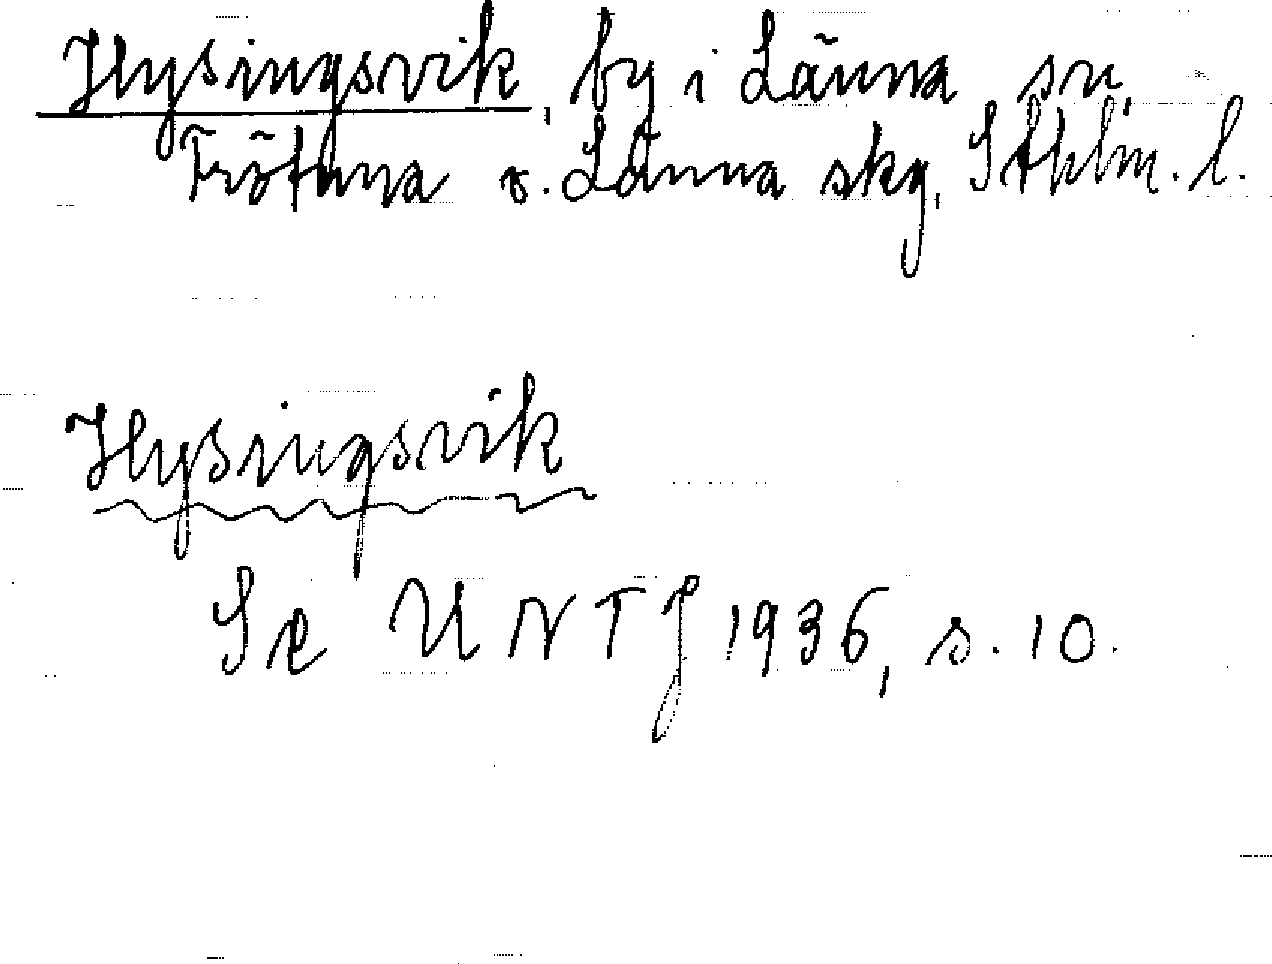 Hysingsvik, by i Länna sn,
Frötuna o. Länna skg, Sthlm. l.
Hysingsvik
Se UNTJ 1936, s. 10.